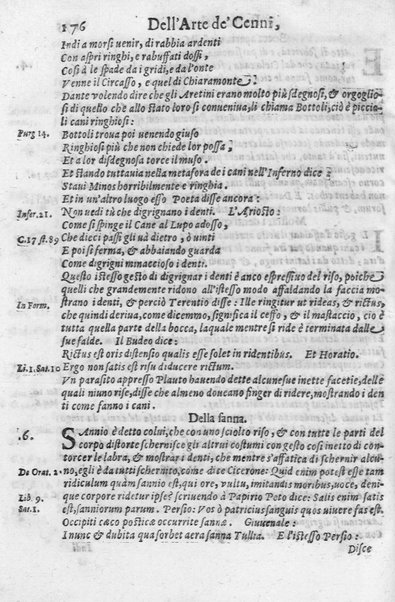 176 Dell'Arte de' Cenni,
Indi a morsi venir, di rabbia ardenti
Con aspri ringhi, e rabuffati dossi,
Così à le spade da i gridi, e da l'onte
Venne il Circasso, e quel di Chiaramonte.
Dante volendo dire che gli Aretini erano molto più sdegnosi, & orgoglio-
si di quello che allo stato loro si conueniua, li chiama Bottoli, ciò è piccio-
li cani ringhiosi:
Purg 14. Bottoli troua poi venendo giuso
Ringhiosi più che non chiede lor possa,
Et a lor disdegnosa torce il muso.
Et stando tuttauia nella metafora de i cani nell'Inferno dice:
Staui Minos horribilmente e ringhia.
Et in un'altro luogo esso Poeta disse ancora:
Infer. 21. Non uedi tù che digrignano i denti. L'Ariosto:
Come si spinge il Cane al Lupo adosso,
C. 17 st. 89 Che dieci passi gli uà dietro, ò uinti
E poi si ferma, & abbaiando guarda
Come digrigni minacciosi i denti.
Questo istesso gesto di digrignar i denti è anco espressiuo del riso, poiche
quelli che grandemente ridono all'istesso modo affaldando la faccia mo-
In Form. strano i denti, & perciò Terentio disse: Ille ringitur ut rideas, & rictus,
che quindi deriua, come dicemmo, significa il ceffo, & il mostaccio, cio è
tutta quella parte della bocca, laquale mentre si ride è terminata dalle
sue falde. Il Budeo dice:
Rictus est oris distensio qualis esse solet in ridentibus. Et Horatio.
Li. 1. Sat. 10 Ergo non satis est risu diducere rictum.
Vn parasito appresso Plauto hauendo dette alcune sue inette facetie, delle
quali niuno rise, disse che almeno doucano finger di ridere, mostrando i den
ti come fanno i cani.
Della sanna.
.6. SAnnio è detto colui, che con uno sciolto riso, & con tutte le parti del
corpo distorte schernisce gli altrui costumi con gesto così inetto di contor-
cer le labra, & mostrar i denti, che mentre s'affatica di schernir alcu-
De Orat. 2. no, egli è da tutti schernito, come dice Cicerone: Quid enim potest esse tam
ridiculum quàm sannio est, qui ore, vultu, imitandis moribus, uoce, deni-
Lib 9. que corpore ridetur ipse? scriuendo à Papirio Peto dice: Salis enim satis
Sat. 1. est, sanniorum parum. Persio: Vos ò patricius sanguis quos viuere fas est.
Occipiti cæco posticæ occurrite sannæ. Giuuenale:
I nunc & dubita qua sorbet aera sanna Tullia. E l'istesso Persio:
Disce